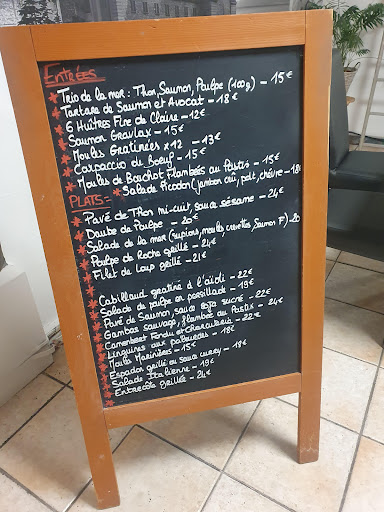 ENTRÉES
* Trio de la mer : Thon, Saumon, Poulpe (100g) - 15€
* Tartare de Saumon et Avocat - 18€
* 6 Huîtres Fine de Claire - 12€
* Saumon Gravlax - 15€
* Moules Gratinées x12 - 13€
* Carpaccio de Boeuf - 15€
* Moules de Bouchot Flambées au Pastis - 15€
* Salade Picodon (jambon crû, pdt, chèvre - 18€
PLATS :
* Pavé de Thon mi-cuit, sauce sésame - 24€
* Daube de Poulpe - 20€
* Salade de la mer (supions, moules, crevettes, Saumon F) - 20
* Poulpe de Roche grillé - 24€
* Filet de Loup grillé - 21€
* Cabillaud gratiné à l'aïoli - 22€
* Salade de poulpe en persillade - 19€
* Pavé de Saumon, sauce soja sucré - 22€
* Gambas sauvages, flambées au Pastis - 24€
* Camembert Fondu et Charcuterie - 22€
* Linguines aux palourdes - 18€
* Moules Marinières - 15€
* Espadon grillé ou sauce curry - 18€
* Salade Italienne - 19€
* Entrecôte grillée - 24€